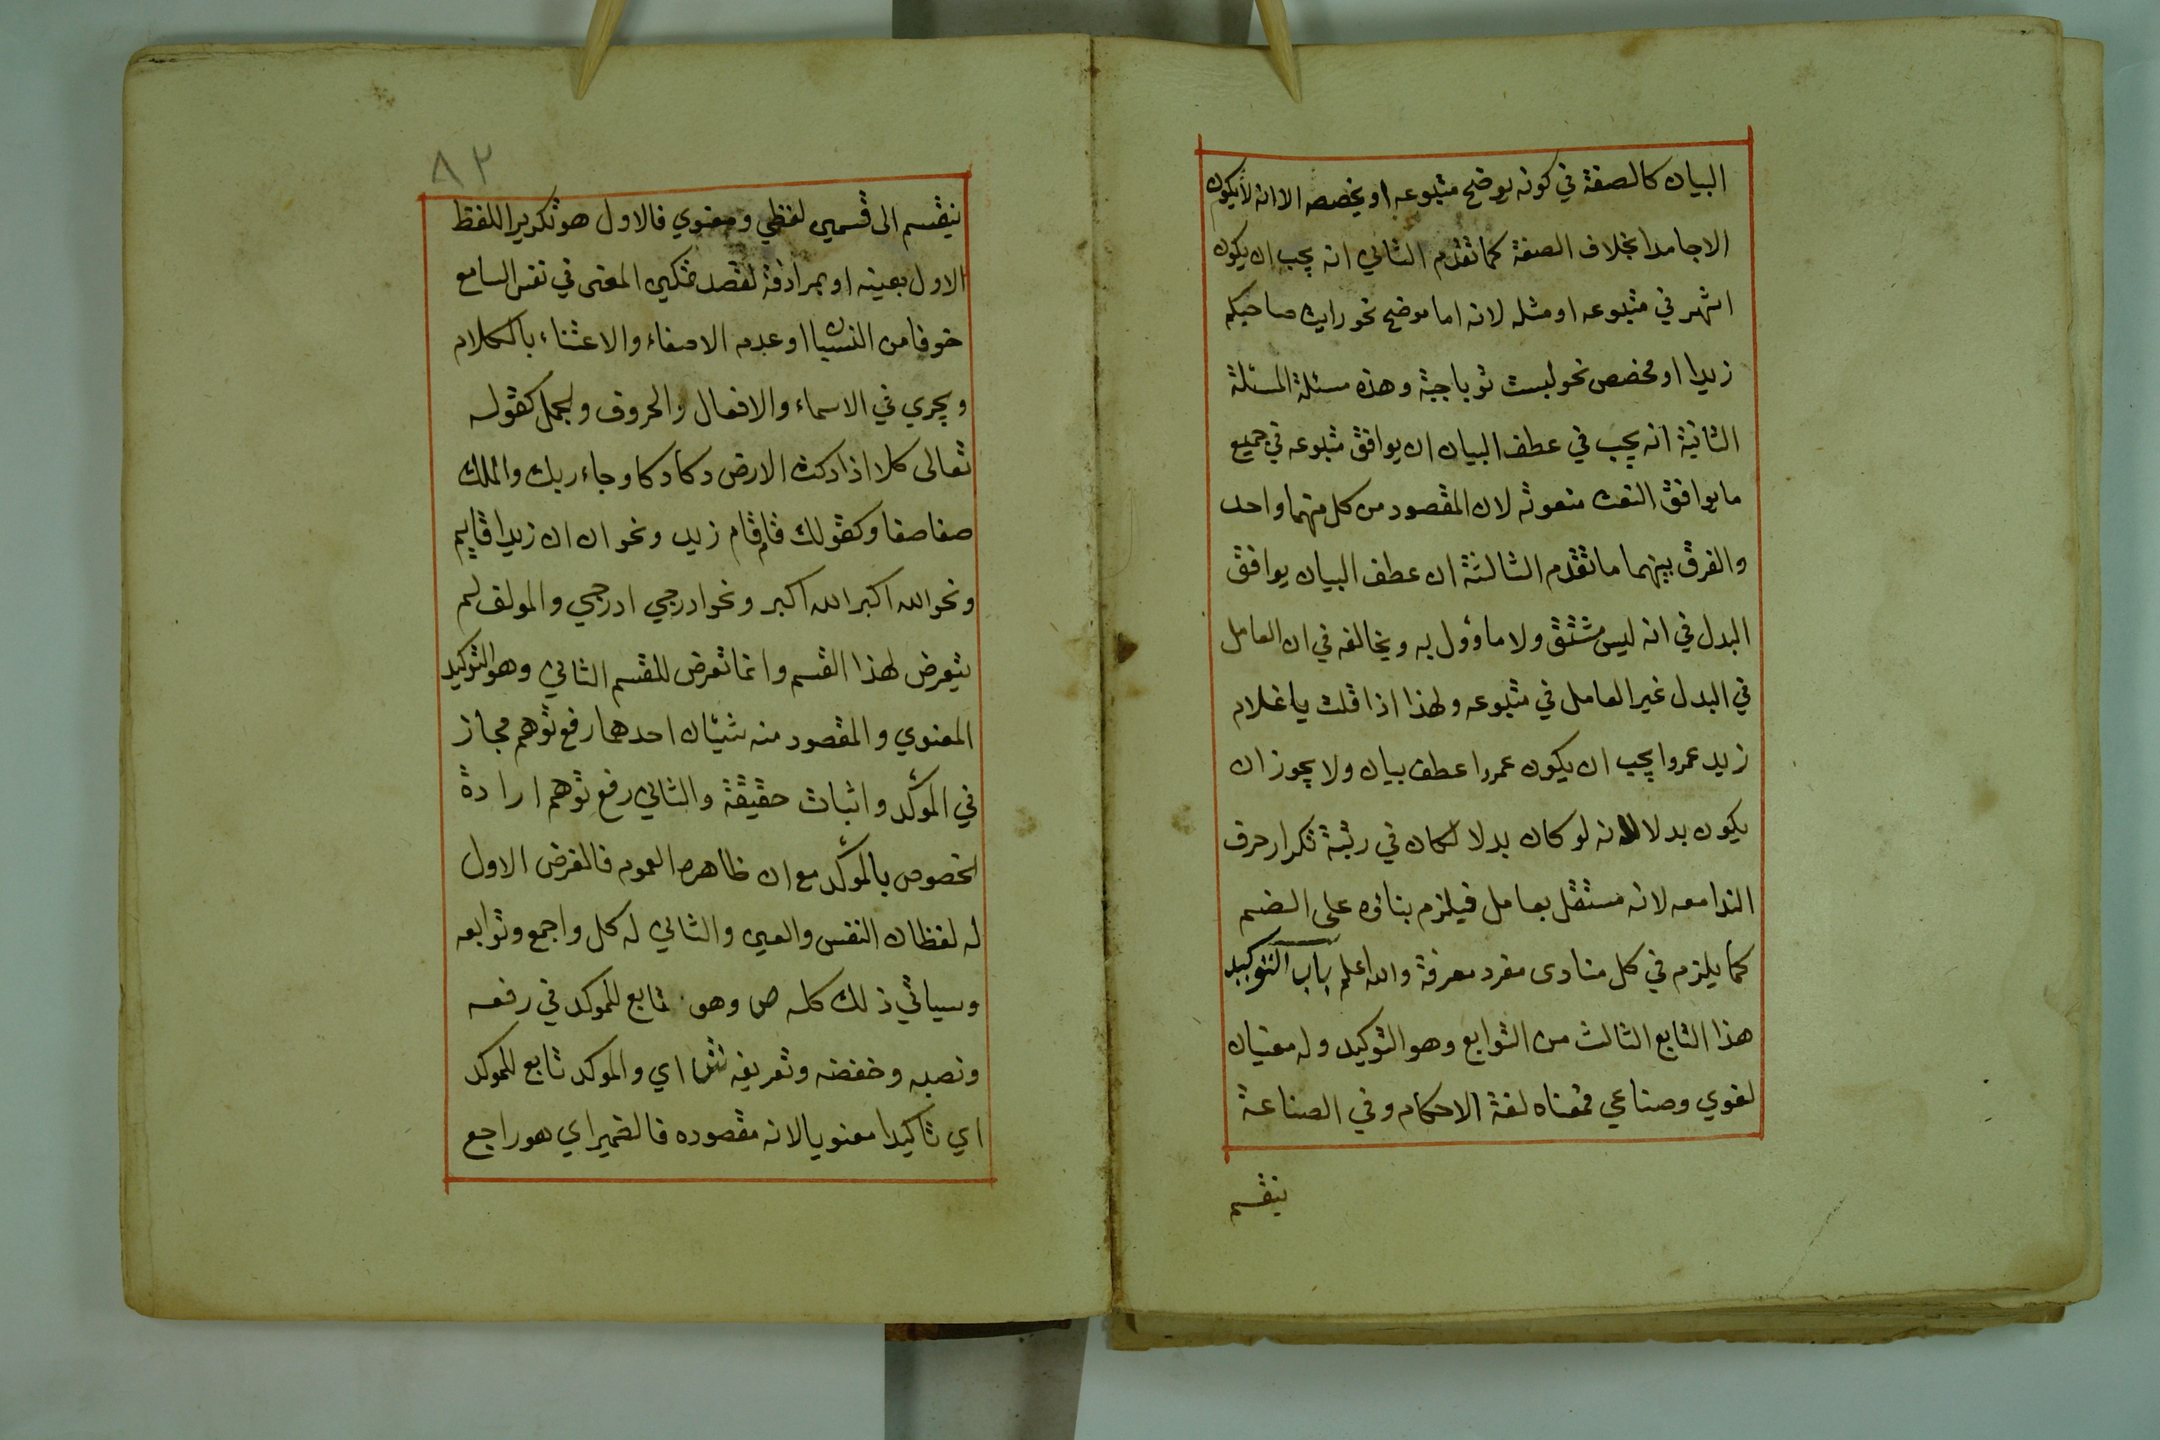 البيان كالصفة في كونه يوضح متبوعه او يخصصه الا انه لا يكون
الا جامدا بخلاف الصفة كما تقدم الثاني انه يجب ان يكون
اشهر في متبوعه او مثله لانه اما موضح نحو رايت صاحبكم
زيدا او مخصص نحو لبست ثوبا جبة وهذه مسئلة المسئلة
الثانية انه يجب في عطف البيان ان يوافق متبوعه في جميع
ما يوافق النعت منعوته لان المقصود من كل منهما واحد
والفرق بينهما ما تقدم الثالثة ان عطف البيان يوافق
البدل في انه ليس مشتق ولا ما وؤول به ويخالفه في ان العامل
في البدل غير العامل في متبوعه ولهذا اذا قلت يا غلام
زيد عمروا يجب ان يكون عمروا عطف بيان ولا يجوز ان
يكون بدلا لانه لو كان بدلا لكان في رتبة تكرار حرف
الندا معه لانه مستقل بعامل فيلزم بنائه على الضم
كما يلزم في كل منادى مفرد معرفة والله اعلم باب التوكيد
هذا التابع الثالث من التوابع وهو التوكيد وله معنيان
لغوي وصناعي فمعناه لغة الاحكام وفي الصناعة
ينقسم
٨٢
ينقسم الى قسمين لفظي ومعنوي فالاول هو تكرير اللفظ
الاول بعينه او بمرادفة لقصد تمكين المعنى في نفس السامع
خوفا من النسيان او عدم الاصغاء والاعتناء بالكلام
ويجري في الاسماء والافعال والحروف والجمل كقوله
تعالى كلا اذا دكت الارض دكا دكا وجاء ربك والملك
صفا صفا وكقولك قام قام زيد ونحو ان ان زيدا قايم
ونحو الله اكبر الله اكبر ونحو ادرجي ادرجي والمولف لم
يتعرض لهذا القسم وانما تعرض للقسم الثاني وهو التوكيد
المعنوي والمقصود منه شيئان احدهما رفع توهم مجاز
في المؤكد واثبات حقيقة والثاني رفع توهم ارادة
لخصوص بالمؤكد مع ان ظاهره العموم فالغرض الاول
له لفظان النفس والعين والثاني له كل واجمع وتوابعه
وسياتي ذلك كله ص وهو تابع للموكد في رفعه
ونصبه وخفضه وتعريفه ش اي والموكد تابع للموكد
اي تاكيدا معنويا لانه مقصوده فالضمير اي هو راجع